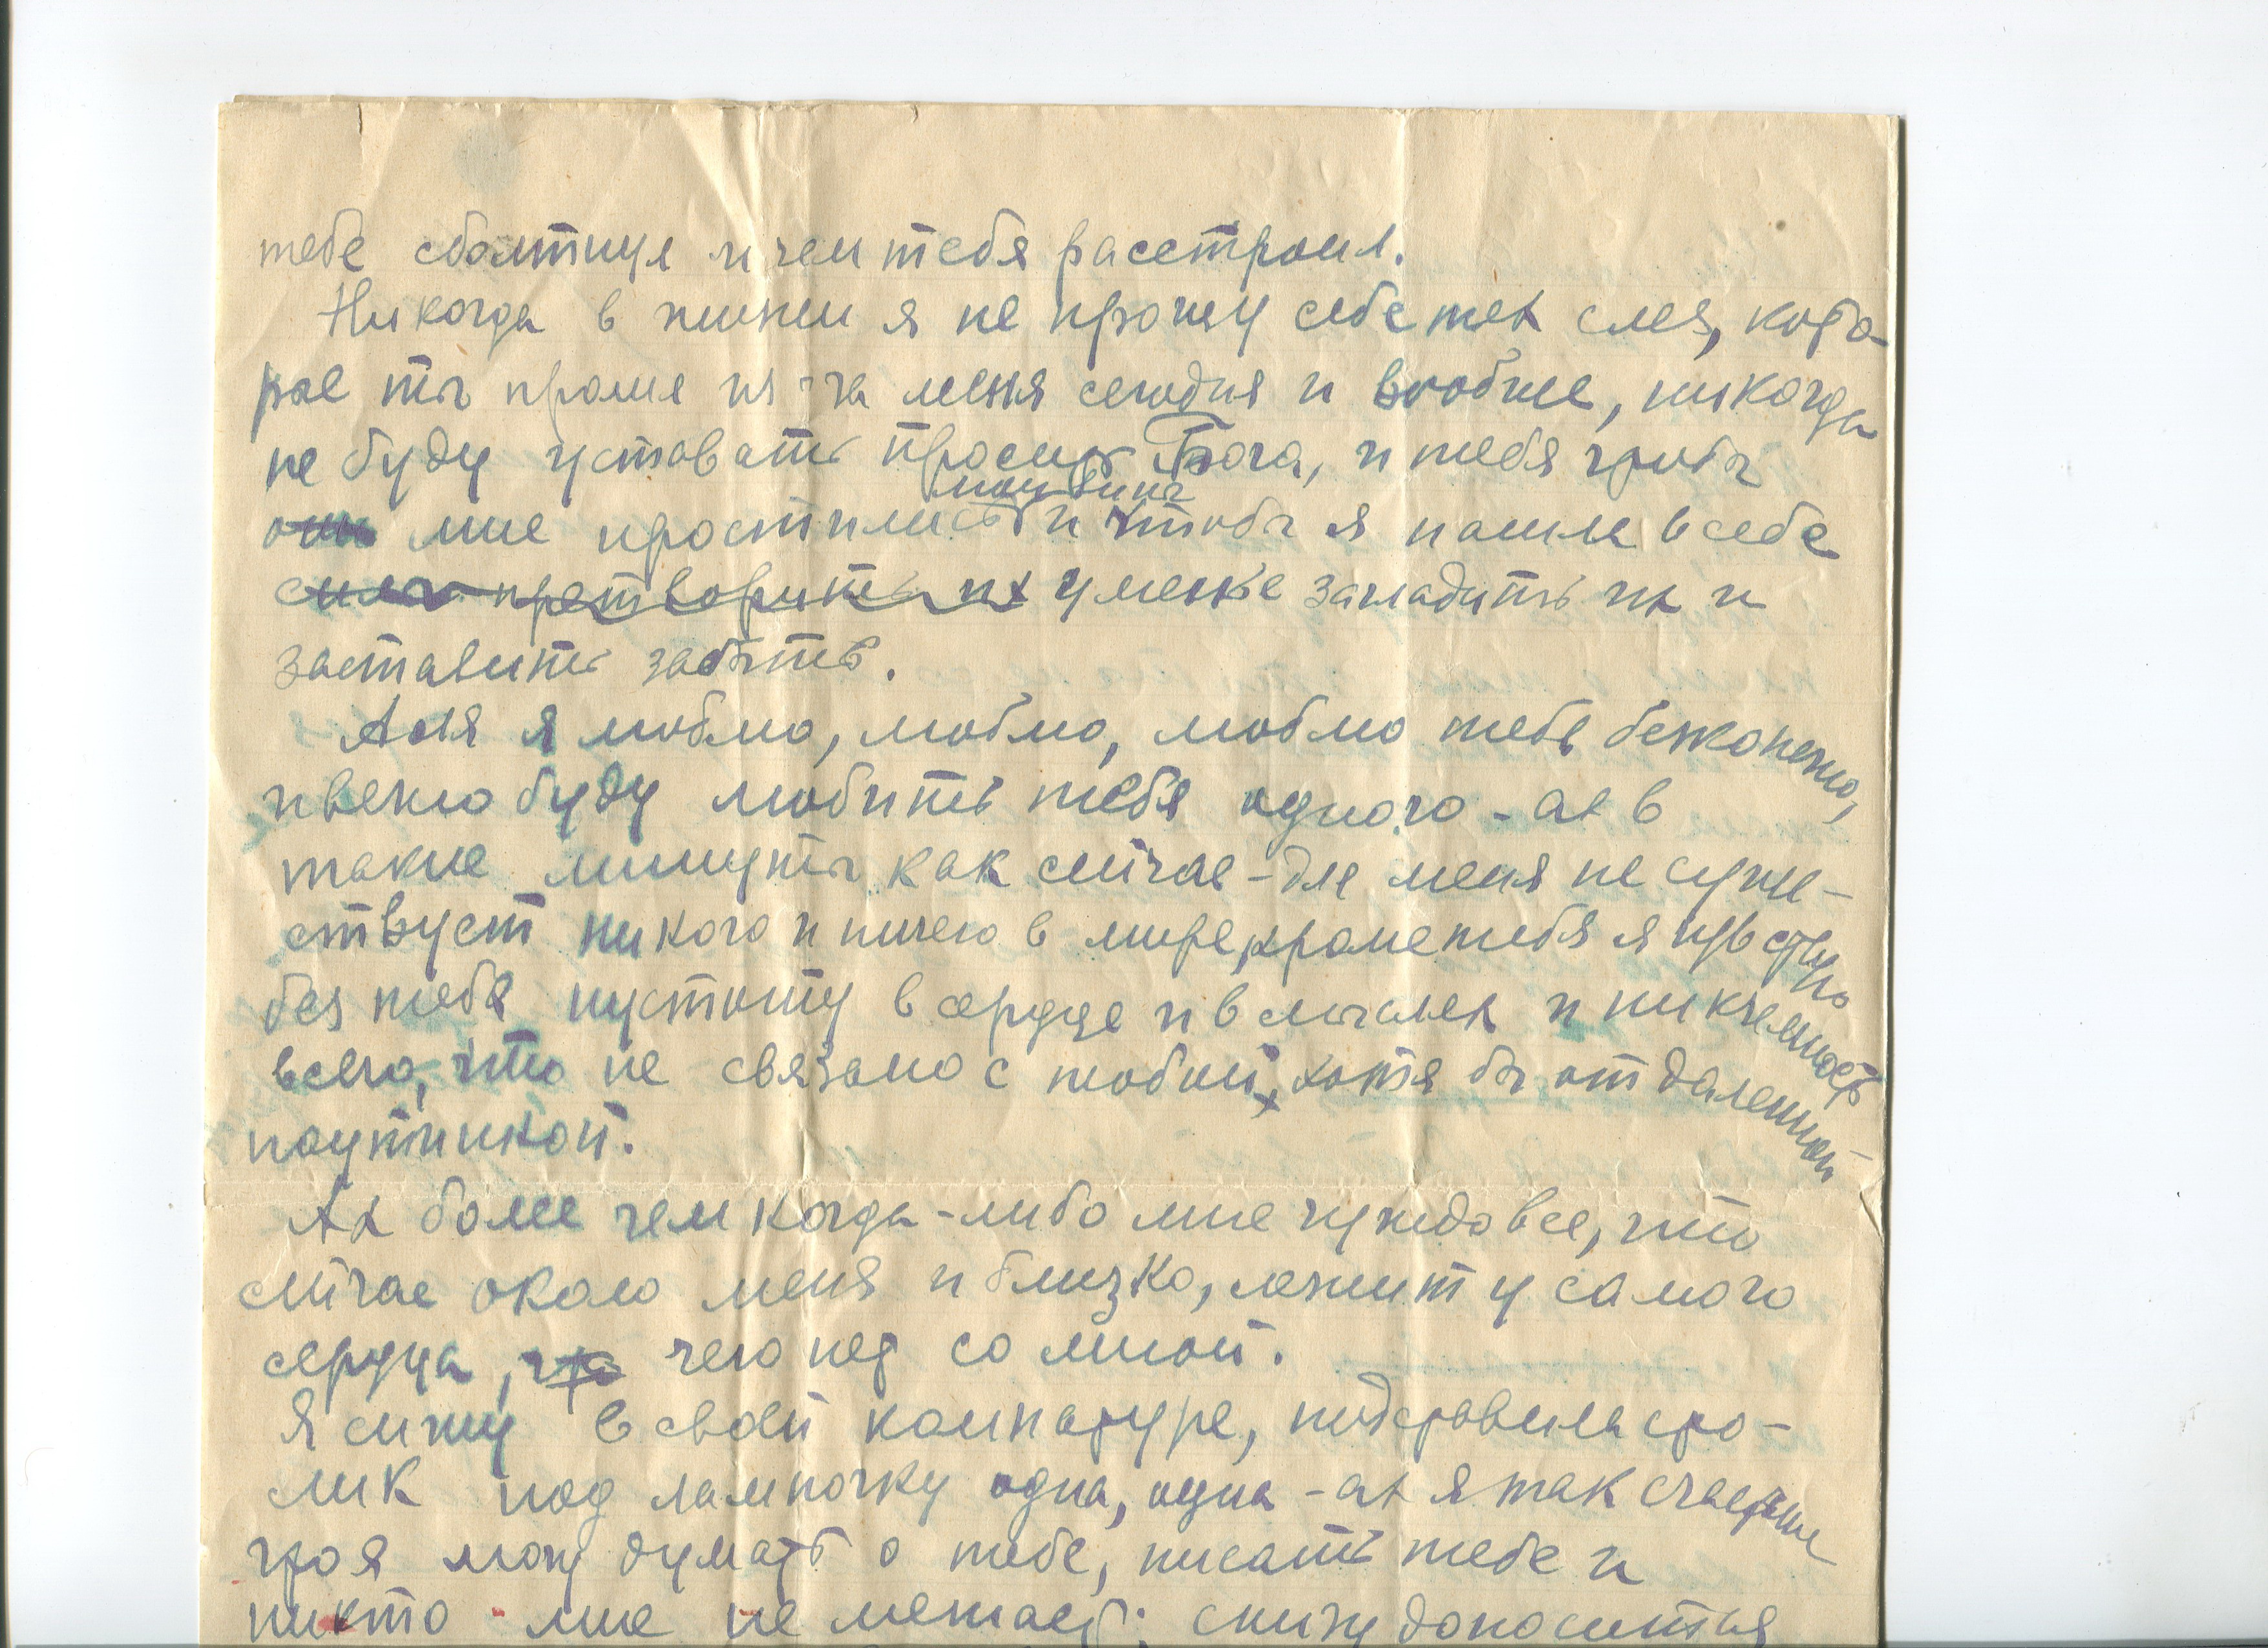 тебе сболтнул и чем тебя расстроил.
Никогда в жизни я не прощу себе тех слез, кото-
рые ты пролил из-за меня сегодня и вообще, никогда
не буду уставать просить Бога, и тебя чтобы
они мне простились и чтобы я нашла в себе
мои вины
силы претворить их уменье загладить их и
заставить забыть.
Аля я люблю, люблю, люблю тебя бесконечно,
и вечно буду любить тебя одного - ах в
такие минуты как сейчас - для меня не суще-
ствует никого и ничего в мире, кроме тебя я чувствую
без тебя пустоту в сердце и в мыслях и никчемность
всего, что не связано с тобой, хотя бы отдаленной
паутинкой.
Ах более чем когда-либо мне чуждо все, что
сейчас около меня и близко, лежит у самого
сердца, что чего нет со мной.
Я сижу в своей комнатуре, подставила сто-
лик под лампочку одна, одна - ах я так счастлива
что я могу думать о тебе, писать тебе и
никто мне не мешает; снизу доносится